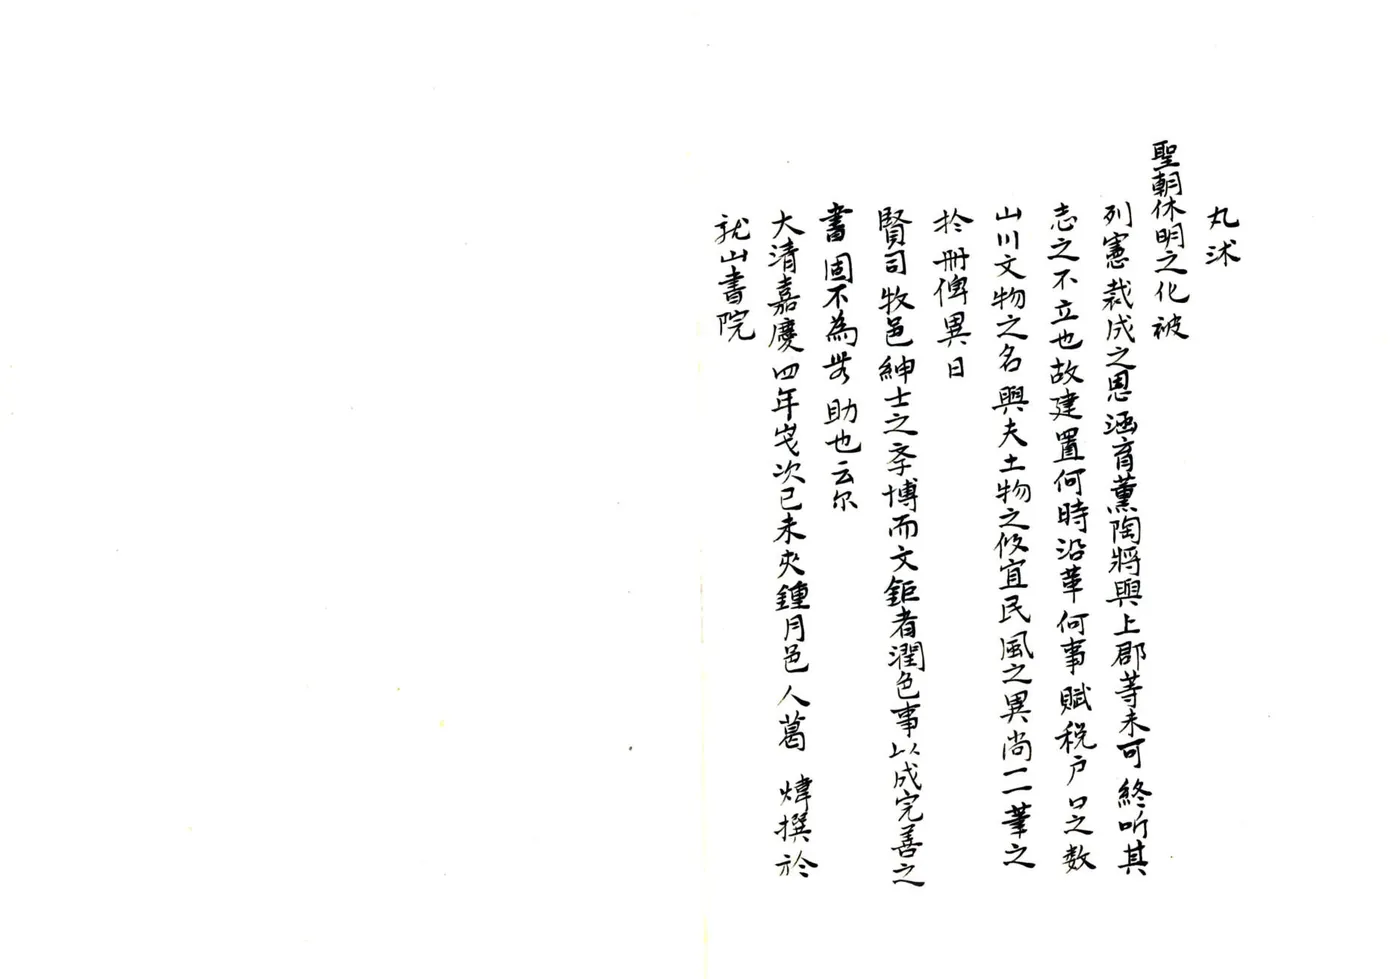 丸沭
聖朝休明之化被
列憲裁成之恩涵育薰陶將與上郡等未可終听其
志之不立也故建置何時沿革何事賦税户口之数
山川文物之名與夫土物之攸宜民風之異尚一一筆之
扵册俾異日
賢司牧邑紳士之斈博而文鉅者潤色事以成完善之
書固不為無助也云尔
大清嘉慶四年歲次已未夾鍾月邑人葛 煒撰扵
龍山書院